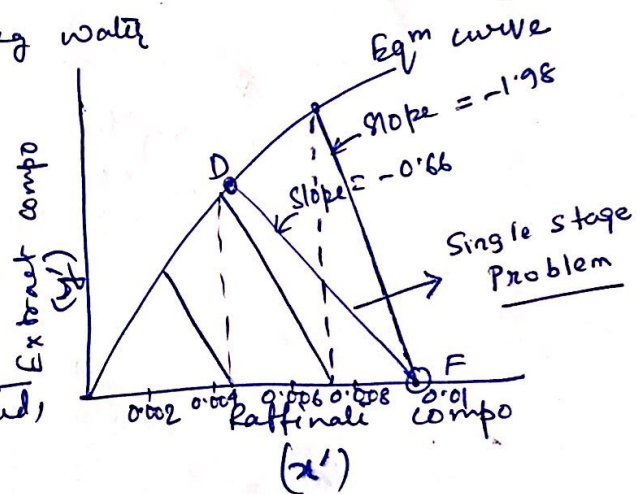 water
Eqm curve
slope = -1.98
D
slope = -0.66
Single stage
Problem
Extract compo
(y')
F
0.002 0.004 0.006 0.008 0.01
Raffinate compo
(x')